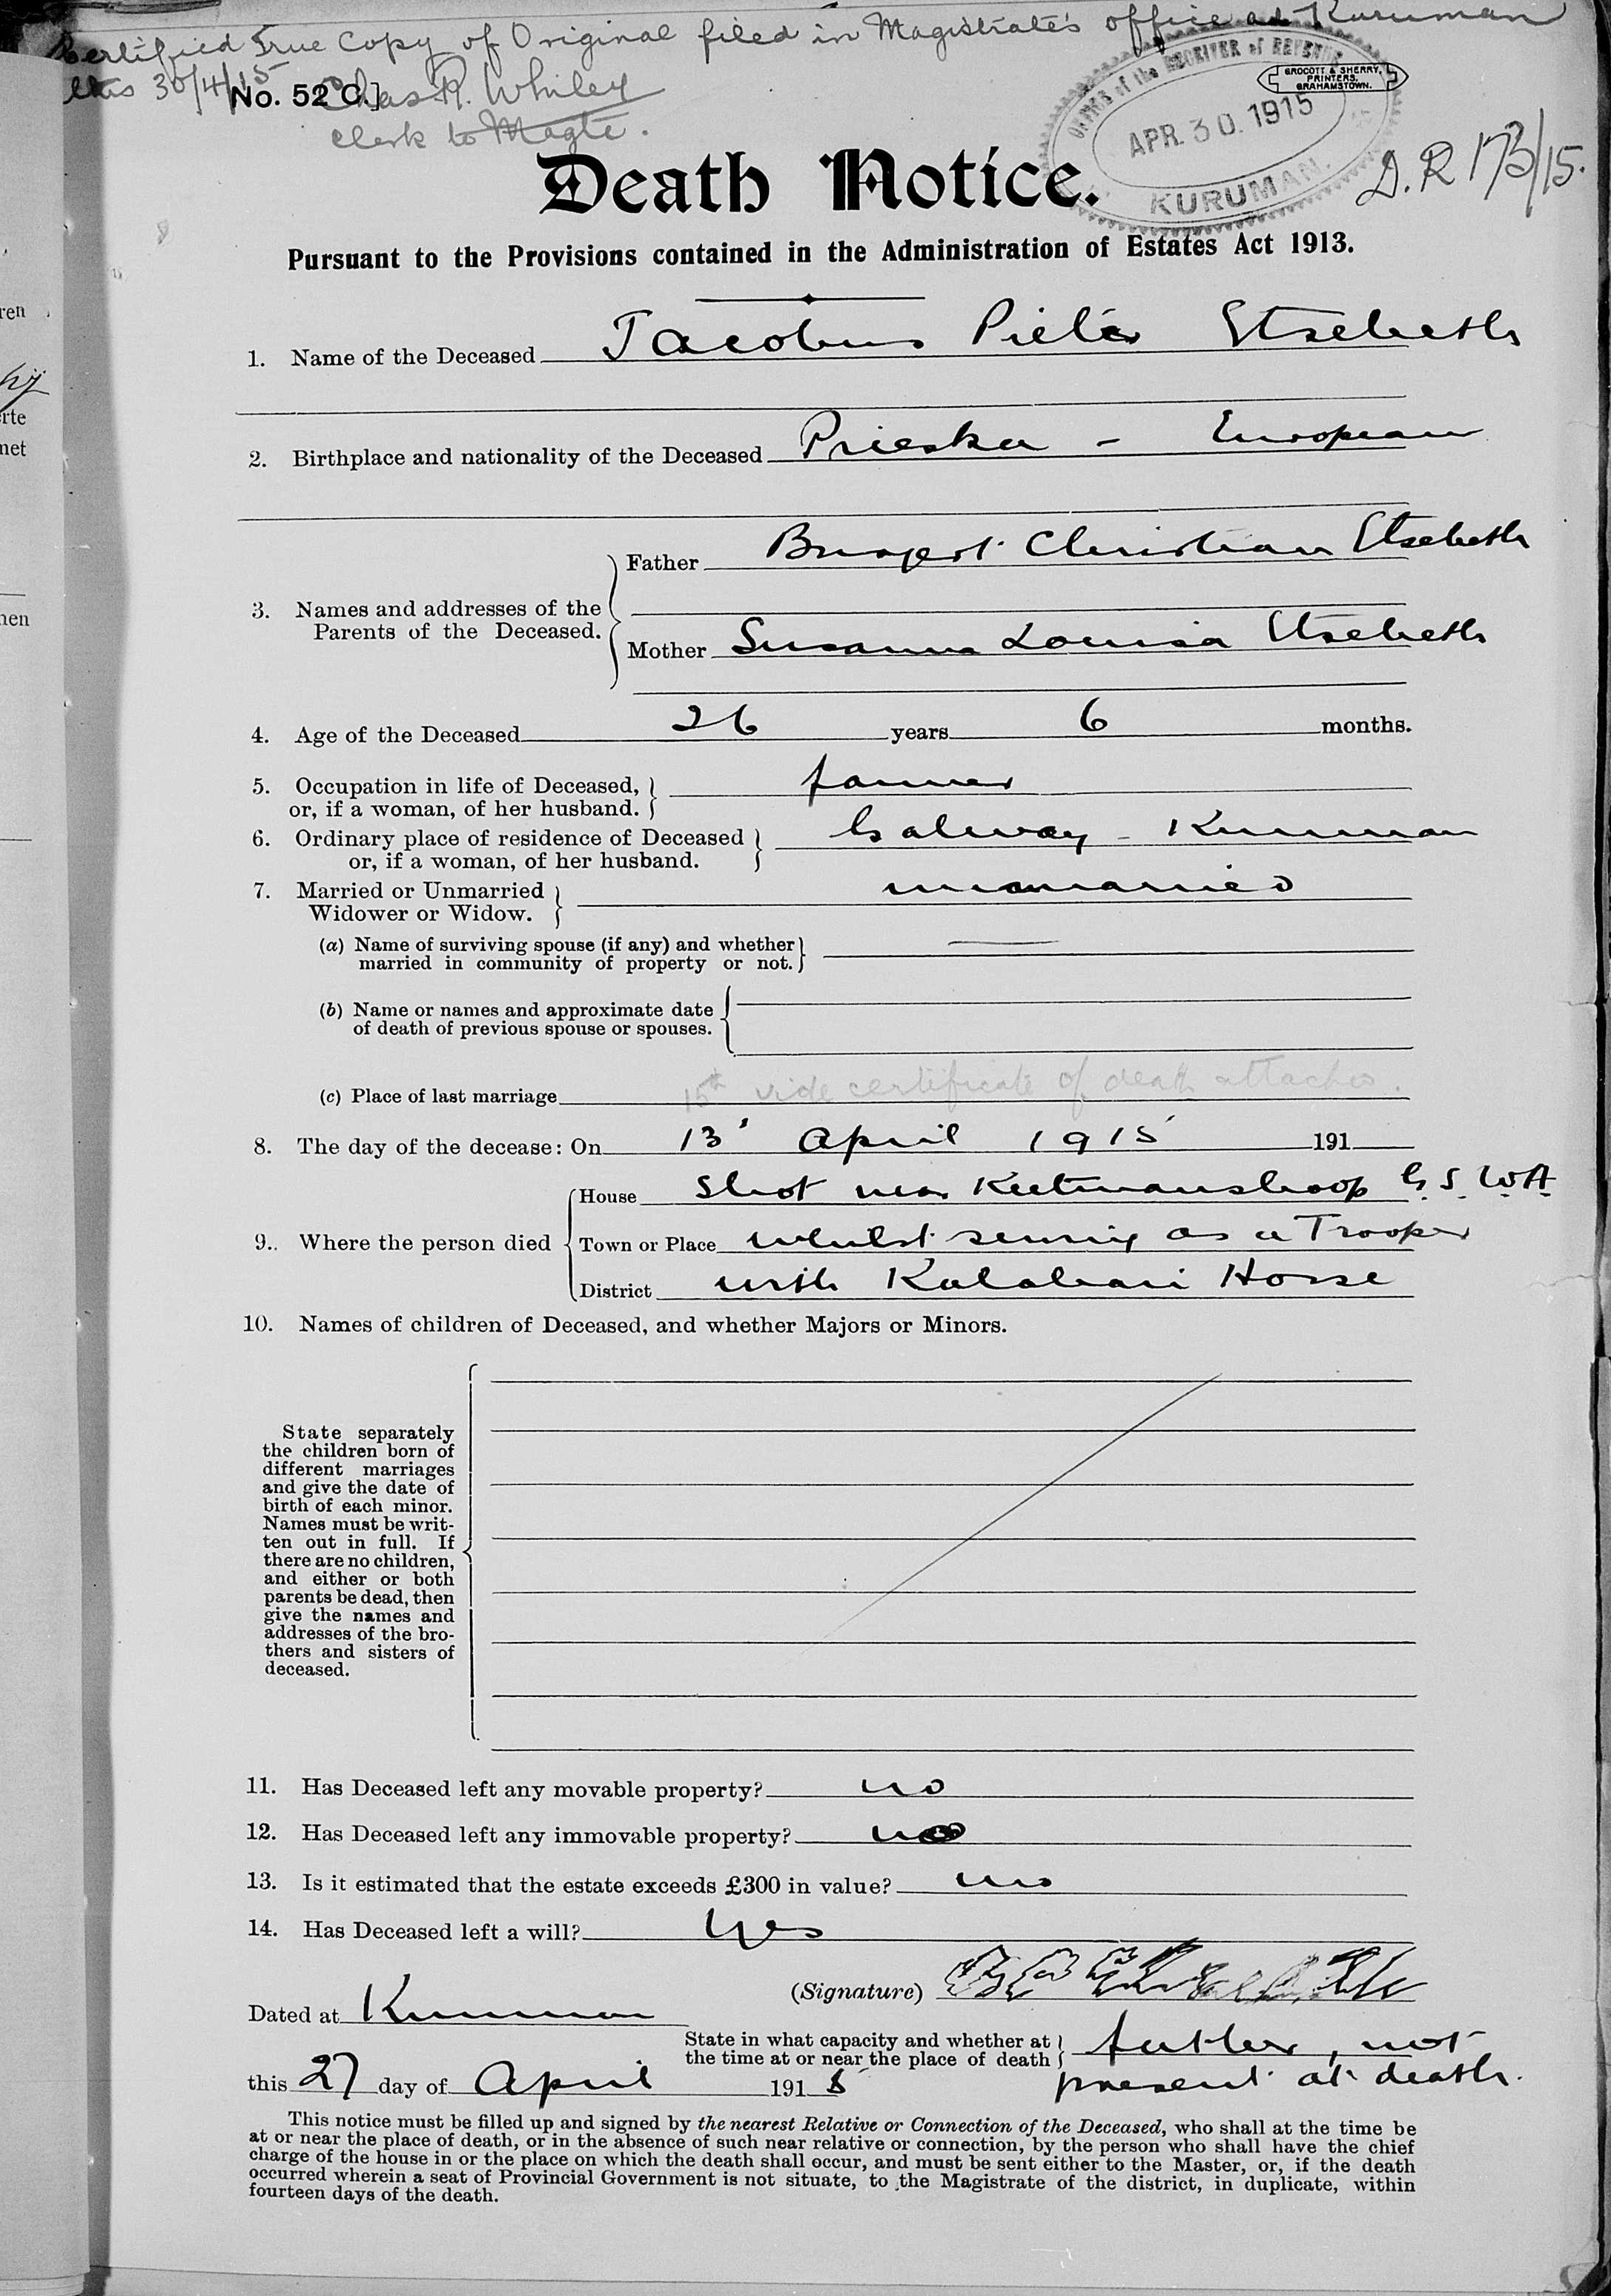 Certified True Copy of Original filed in Magistrate's office at Kuruman
this 30/4/15
No. 52 C.]
Chas R. Whiley
Clerk to Magte.
OFFICE of the RECEIVER of REVENUE
APR. 30. 1915
KURUMAN.
GROCOTT & SHERRY,
PRINTERS,
GRAHAMSTOWN.
D.R 173/15.
Death Notice.
Pursuant to the Provisions contained in the Administration of Estates Act 1913.
1. Name of the Deceased Jacobus Pieter Etsebeth
2. Birthplace and nationality of the Deceased Prieska - European
3. Names and addresses of the Parents of the Deceased.
Father Burgert Christian Etsebeth
Mother Susanna Louisa Etsebeth
4. Age of the Deceased 26 years 6 months.
5. Occupation in life of Deceased, farmer
or, if a woman, of her husband.
6. Ordinary place of residence of Deceased Galway - Kuruman
or, if a woman, of her husband.
7. Married or Unmarried unmarried
Widower or Widow.
(a) Name of surviving spouse (if any) and whether
married in community of property or not.
(b) Name or names and approximate date
of death of previous spouse or spouses.
15th vide certificate of death attached.
(c) Place of last marriage
8. The day of the decease: On 13' April 1915 191
9. Where the person died
House Shot near Keetmanshoop G. S. W. A.
Town or Place whilst serving as a Trooper
District with Kalahari Horse
10. Names of children of Deceased, and whether Majors or Minors.
State separately
the children born of
different marriages
and give the date of
birth of each minor.
Names must be writ-
ten out in full. If
there are no children,
and either or both
parents be dead, then
give the names and
addresses of the bro-
thers and sisters of
deceased.
11. Has Deceased left any movable property? no
12. Has Deceased left any immovable property? no
13. Is it estimated that the estate exceeds £300 in value? no
14. Has Deceased left a will? yes
(Signature) B C Etsebeth
Dated at Kuruman
State in what capacity and whether at father, not
the time at or near the place of death present at death.
this 27 day of April 1915
This notice must be filled up and signed by the nearest Relative or Connection of the Deceased, who shall at the time be
at or near the place of death, or in the absence of such near relative or connection, by the person who shall have the chief
charge of the house in or the place on which the death shall occur, and must be sent either to the Master, or, if the death
occurred wherein a seat of Provincial Government is not situate, to the Magistrate of the district, in duplicate, within
fourteen days of the death.
ren
hij
erte
met
nen